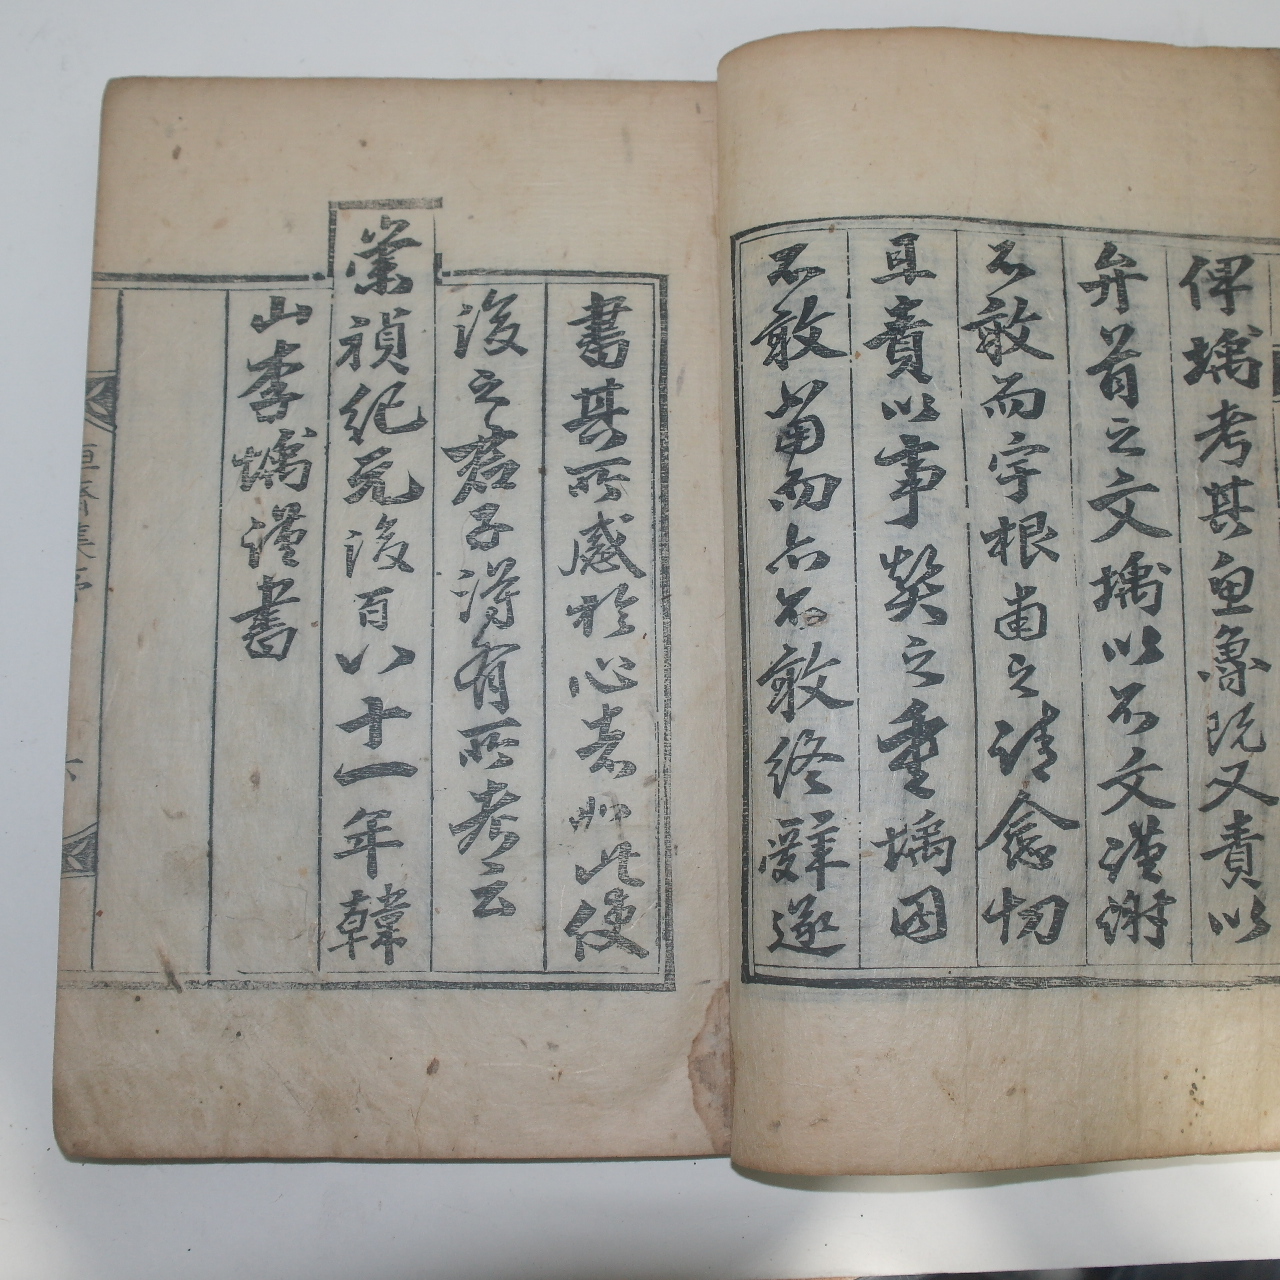 俾㻽考其魚魯既又責以
弁首之文㻽以不文謹謝
不敢而宇根甫之請愈切
且責以事契之重㻽固
不敢當而亦不敢終辭遂
書其所感於心者如此使
後之君子得有所考云
崇禎紀元後百八十一年韓
山李㻽謹書